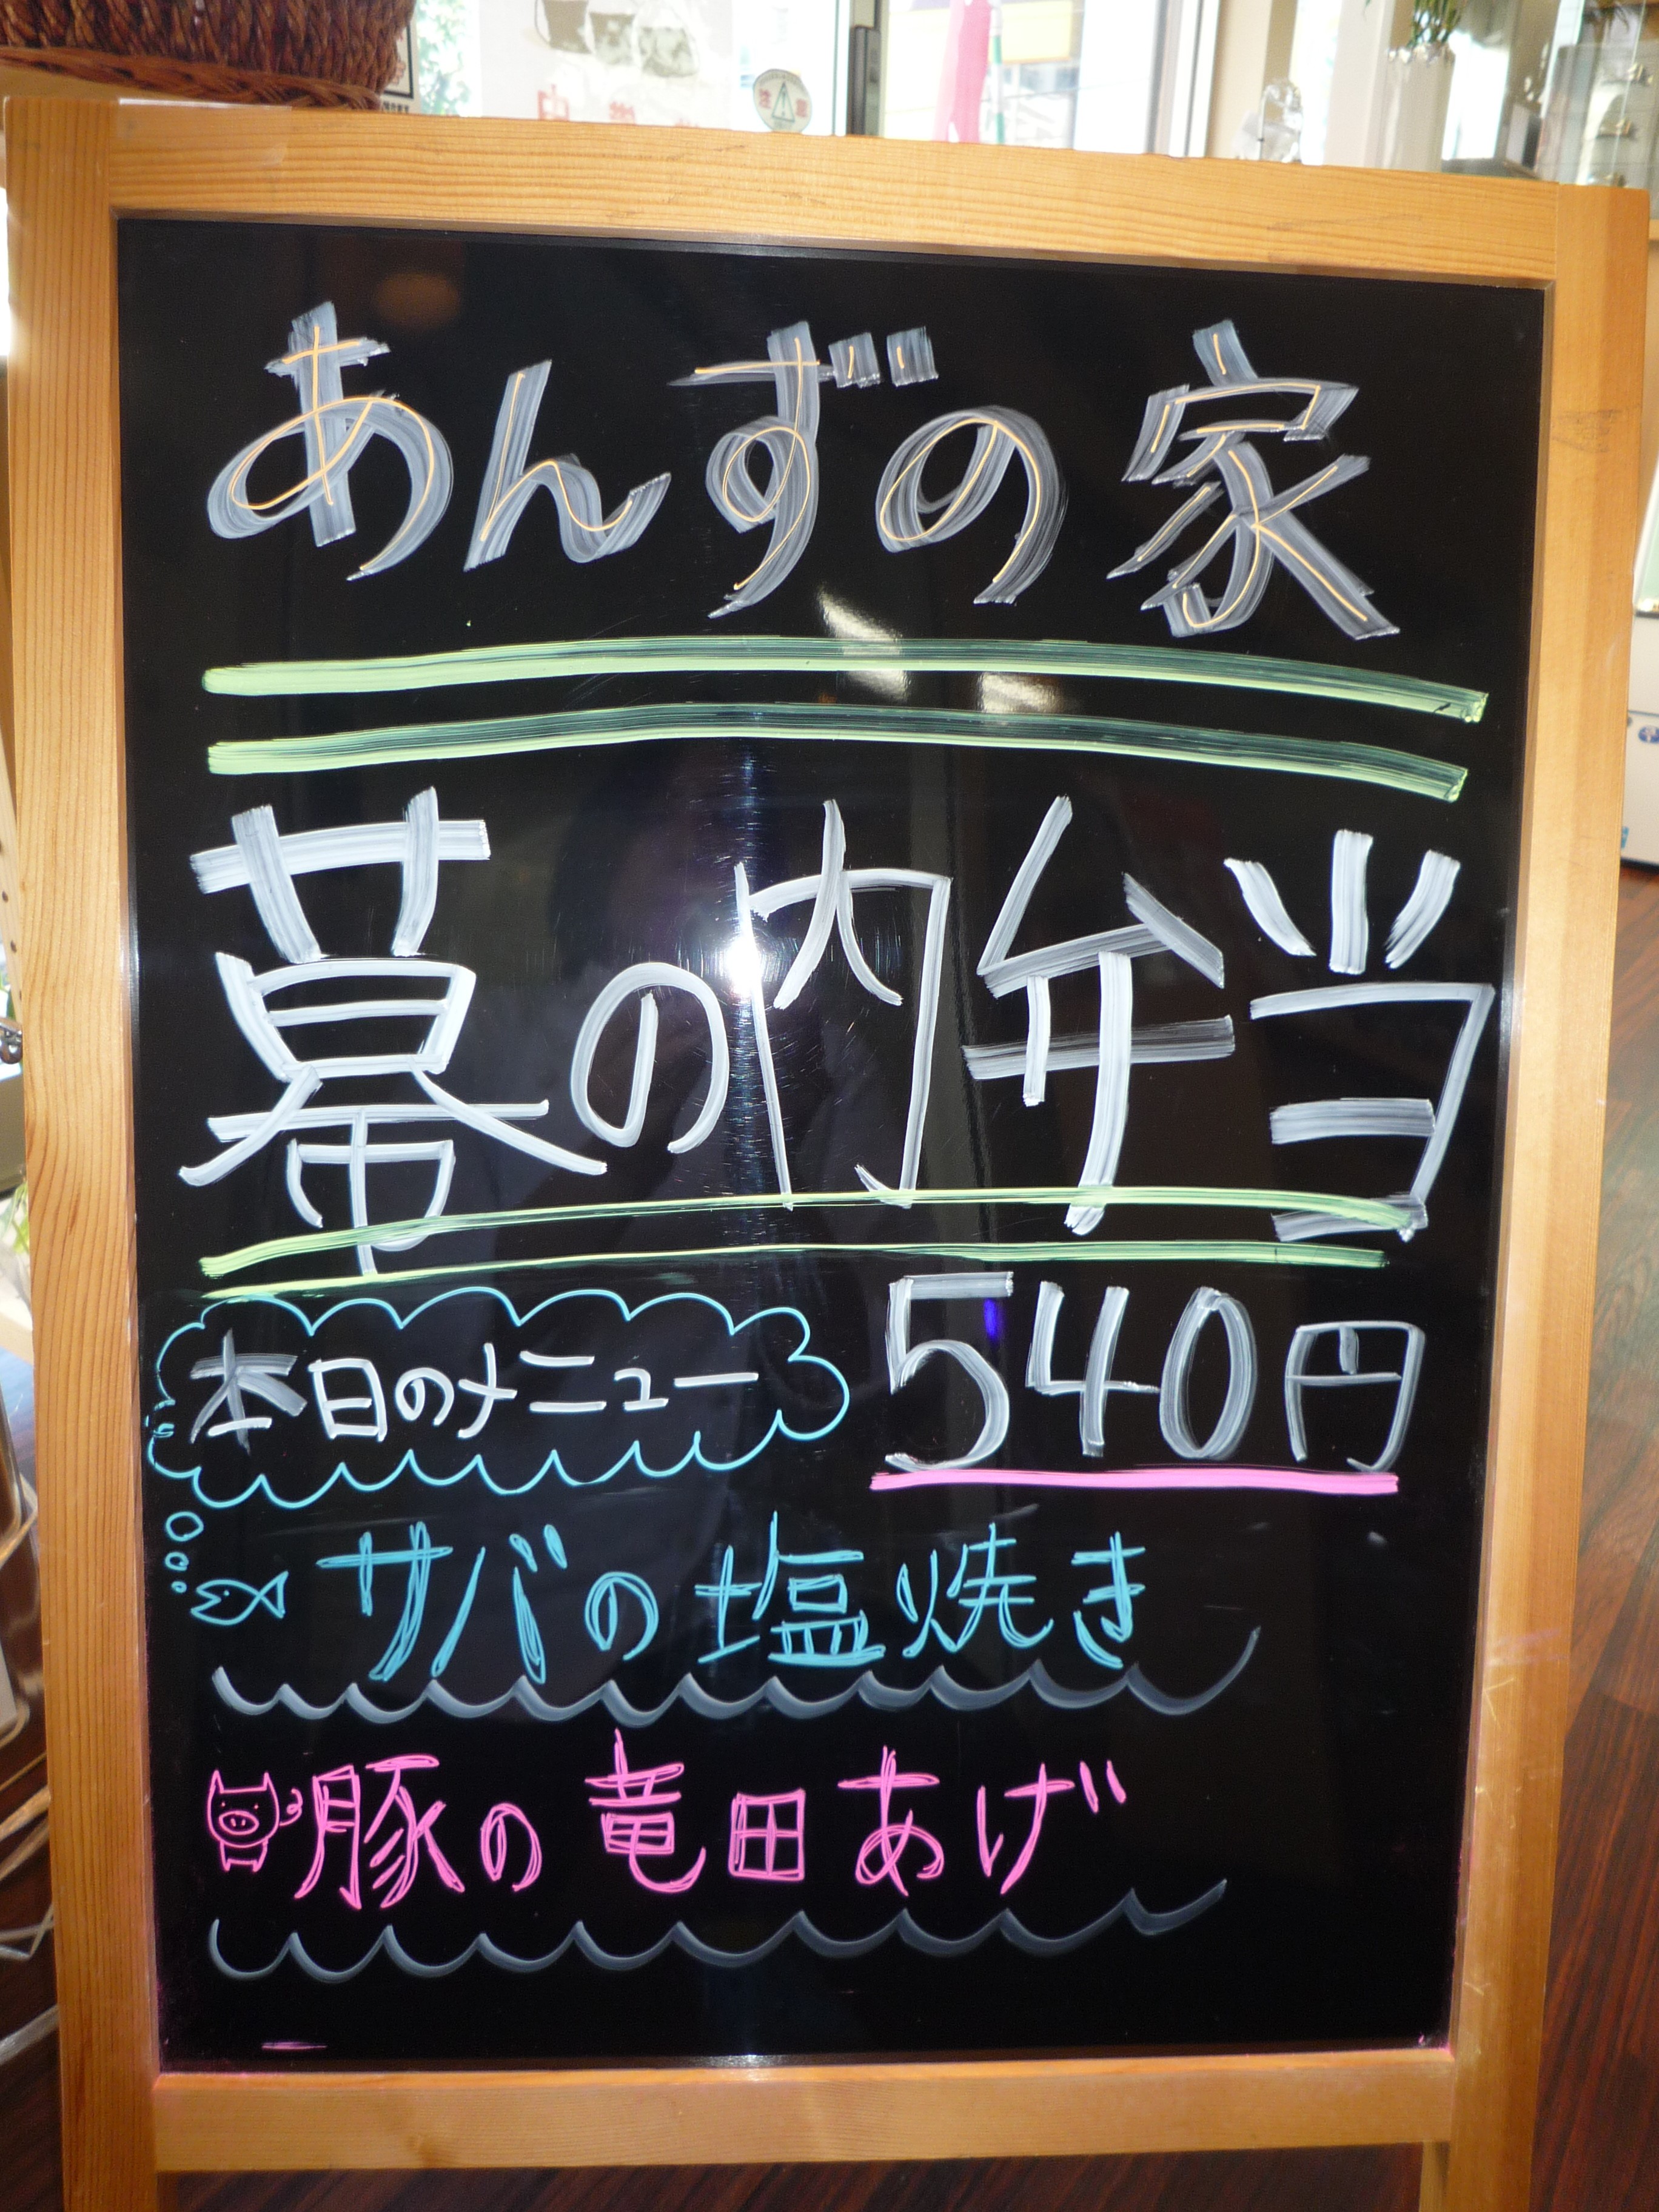 あんずの家
幕の内弁当
540円
本日のメニュー
サバの塩焼き
豚の竜田あげ